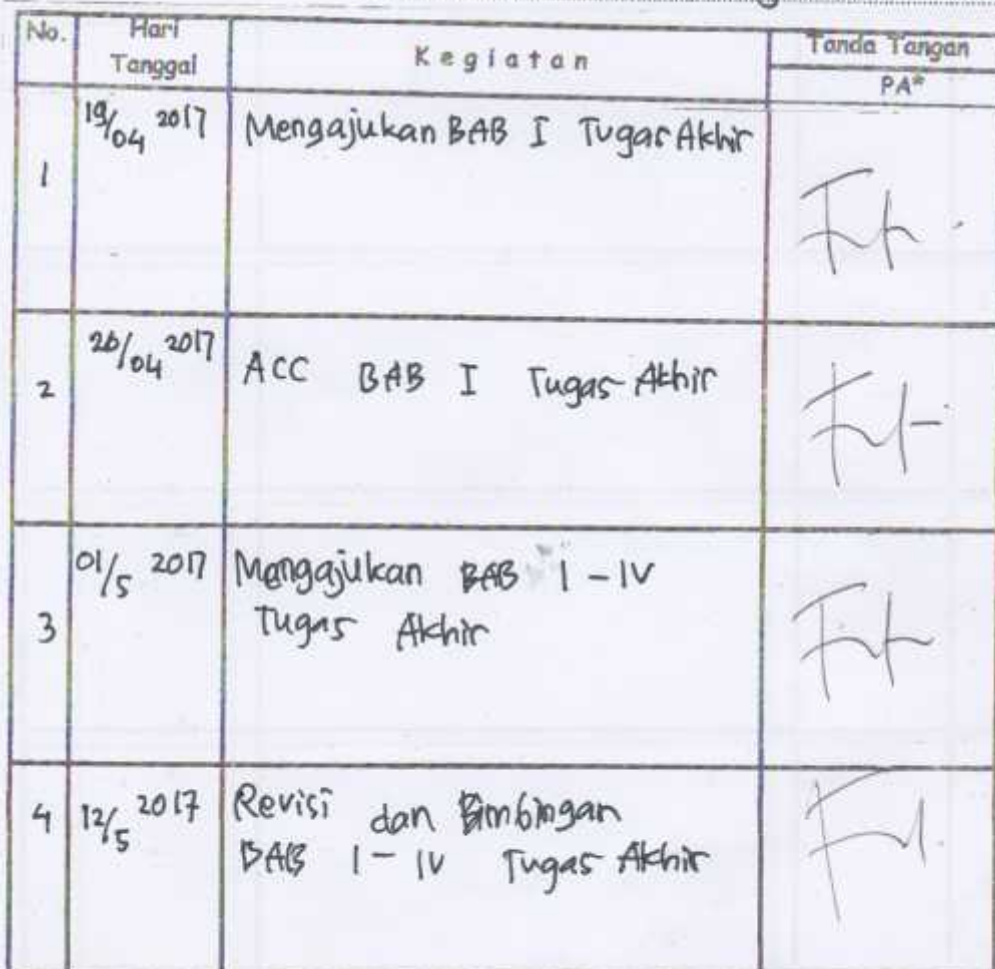 No.
Hari
Tanggal
Kegiatan
Tanda Tangan
PA*
1
19/04 2017
Mengajukan BAB I Tugas Akhir
2
26/04 2017
ACC BAB I Tugas Akhir
3
01/5 2017
Mengajukan BAB I - IV
Tugas Akhir
4
12/5 2017
Revisi dan Bimbingan
BAB I - IV Tugas Akhir